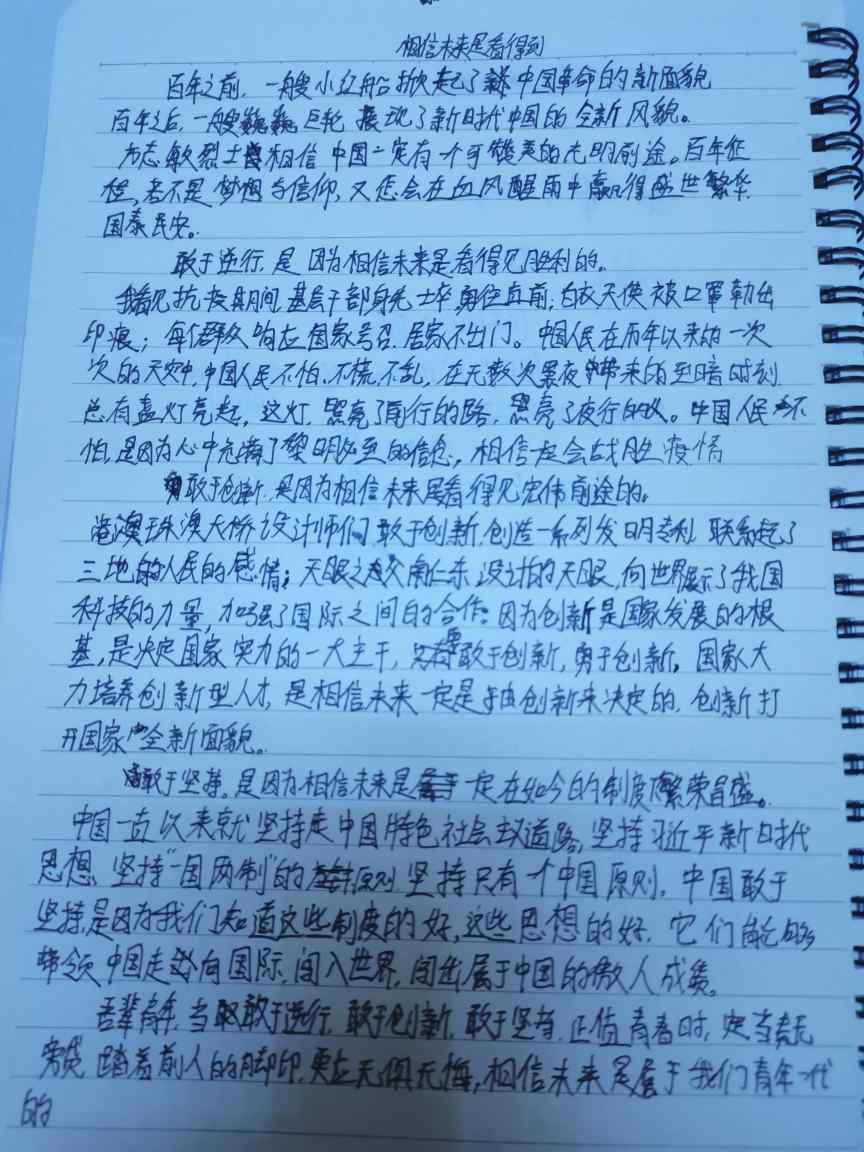 相信未来是看得到
百年之前,一艘小红船掀起了中国革命的新面貌
百年之后,一艘巍巍巨轮展现了新时代中国的全新风貌。
方志敏烈士相信中国一定有一个可赞美的光明前途。百年征
程,若不是梦想与信仰,又怎会在血风醒雨中赢得盛世繁华
国泰民安。
敢于逆行,是因为相信未来是看得见胜利的。
我看见抗疫期间,基层干部身先士卒勇往直前,白衣天使被口罩勒出
印痕;每个群众响应国家号召,居家不出门。中国人民在历年以来的一次
次的天灾中,中国人民不怕、不慌、不乱,在无数次黑夜带来的至暗时刻
总有盏灯亮起,这灯,照亮了前行的路,照亮了夜行的人。中国人民不
怕,是因为心中充满了黎明必至的信念,相信一定会战胜疫情
敢于创新,是因为相信未来是看得见宏伟前途的。
港澳珠澳大桥设计师们敢于创新,创造一系列发明专利,联系起了
三地的人民的感情;天眼之父南仁东设计的天眼,向世界展示了我国
科技的力量,加强了国际之间的合作。因为创新是国家发展的根
基,是决定国家实力的一大主干,只要敢于创新,勇于创新,国家大
力培养创新型人才,是相信未来一定是由创新来决定的,创新打
开国家全新面貌。
敢于坚持,是因为相信未来是一定在如今的制度下繁荣昌盛。
中国一直以来就坚持走中国特色社会主义道路,坚持习近平新时代
思想、坚持“一国两制”的原则,坚持只有一个中国原则,中国敢于
坚持,是因为我们知道这些制度的好,这些思想的好,它们能够
带领中国走向国际,闯入世界,闯出属于中国的傲人成绩。
吾辈青年,当敢于逆行,敢于创新,敢于坚持,正值青春时,定当责无
旁贷,踏着前人的脚印,更应无惧无悔,相信未来是属于我们青年一代
的